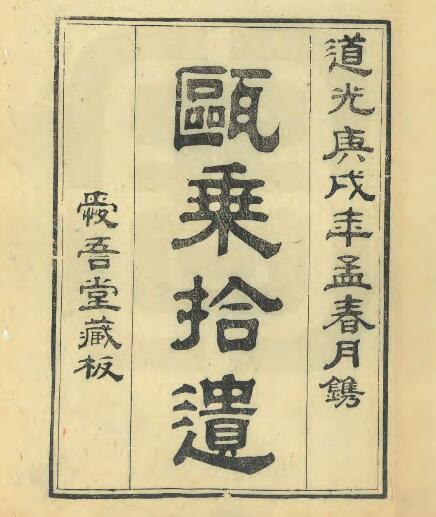 道光庚戌年孟春月鐫
甌乘拾遺
愛吾堂藏板